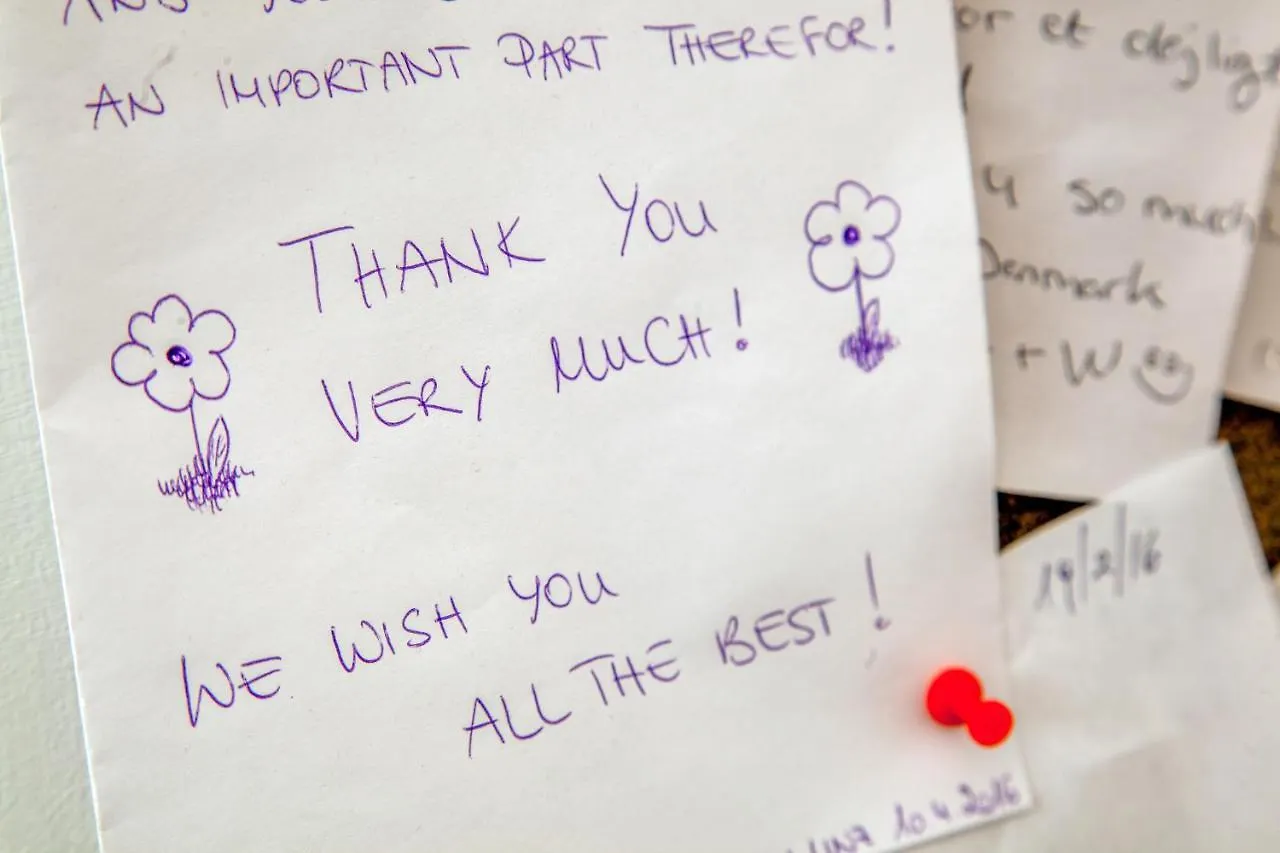 AN IMPORTANT PART THEREFOR!
THANK YOU
VERY MUCH!
WE WISH YOU
ALL THE BEST!
10 4 2016
or et dejligt
so much
Denmark
+ W
19/2/16